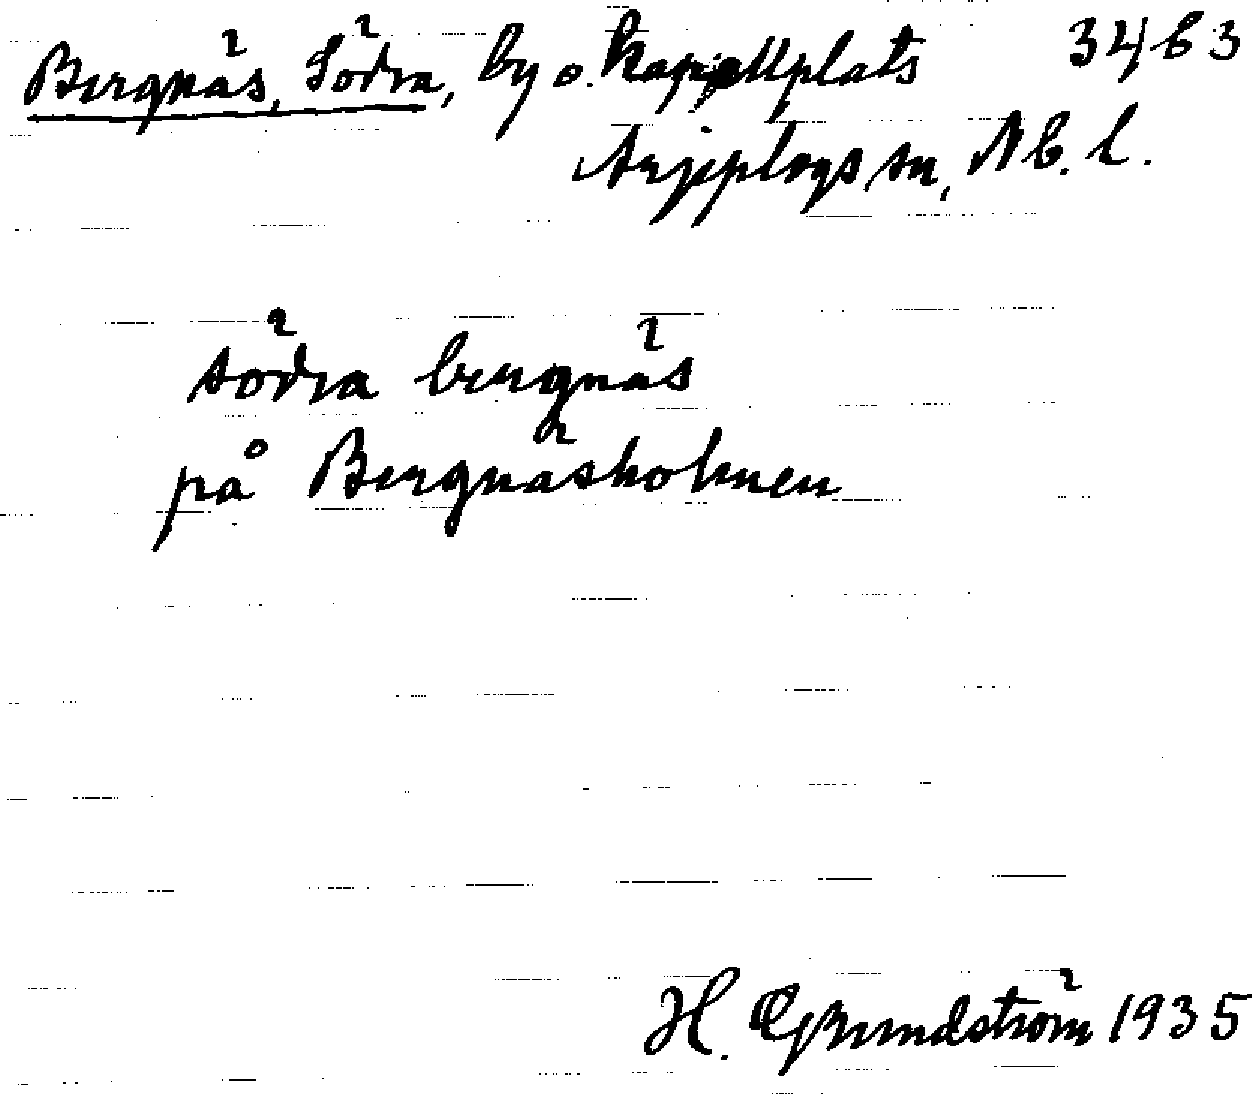 Bergnäs, Södra, by o. kapellplats 3463
Arjeplogs sn, Nb. l.
södra bergnäs
på Bergnäsholmen
H. Grundström 1935